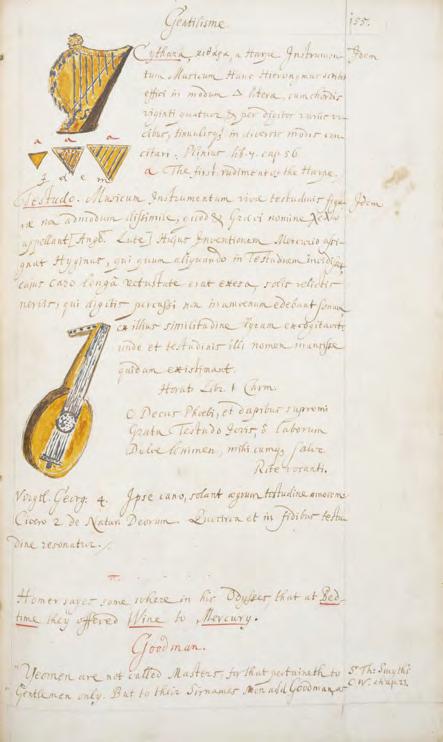 Gentilisme
155.
Cythara, κιθαρα, a Harpe Instrumen-
Idem
tum Musicum Hanc Hieronymus scribit
effici in modum Δ litera, cum chordis
viginti quatuor & per digitos variis vo-
cibus, tinnulisq; in diversis modis con-
citari. Plinius lib. 7. cap. 56
a The first rudiments of the Harpe.
a a a
3 d e m
Testudo. Musicum Instrumentum vivæ testudinis figu-
Idem
ræ non admodum dissimile, quod & Græci nomine
appellant [Angl. Lute] Hujus Inventionem Mercurio assi-
gnat Hyginus, qui quum aliquando in Testudinem incidisset
cujus caro longa vetustate erat exesa, solis relictis
nervis, qui digitis percussi non inamoenum edebant sonum
ex illius similitudine lyram excogitavit
unde et testudinis illi nomen mansisse
quidam existimant.
Horat Lib. 1 Carm.
O Decus Phœbi, et dapibus supremi
Grata Testudo Jovis, ô laborum
Dulce lenimen, mihi cumq; salve
Rite vocanti.
Virgil. Georg. 4. Ipse cava, solans ægrum testudine amorem
Cicero 2. de Natura Deorum. Quocirca et in fidibus testu-
dine resonatur.
Homer sayes some where in his Odysses, that at Bed-
time they offered Wine to Mercury.
Goodman.
"Yeomen are not called Masters, for that pertaineth to
Sr Tho: Smyth's
"Gentlemen only. But to their Sirnames men add Goodman, as
C. W. chap. 23